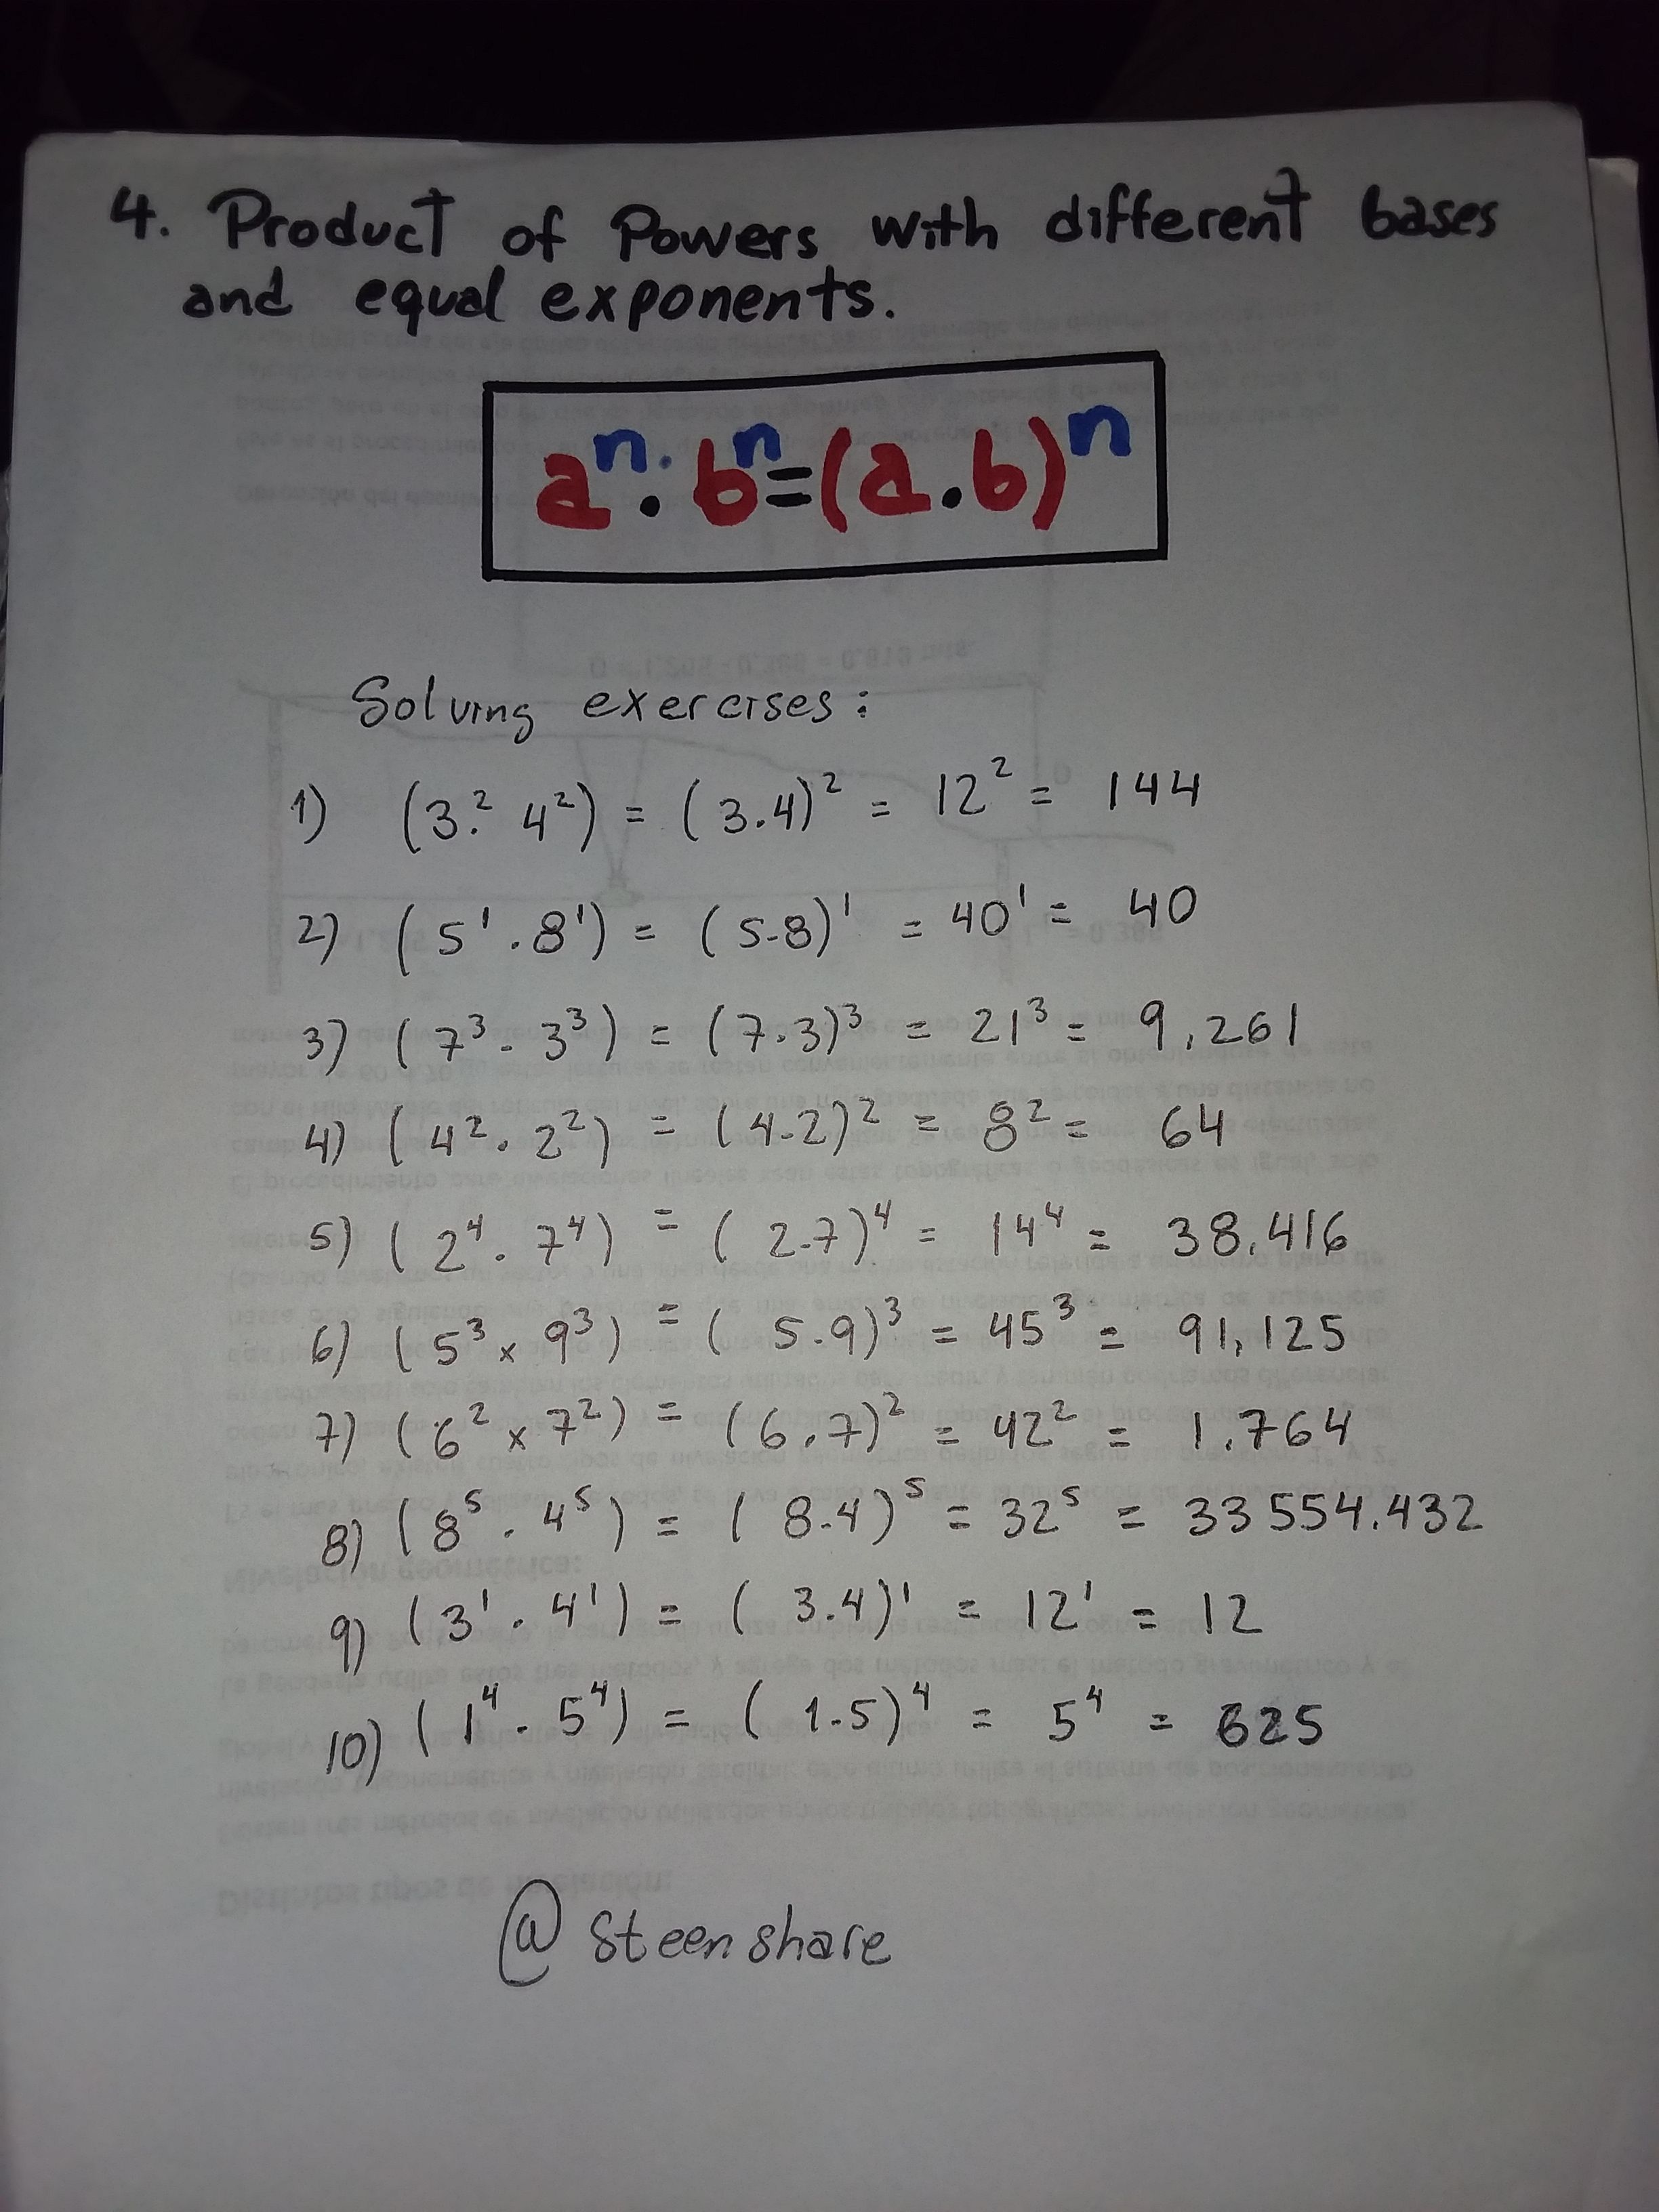 4. Product of Powers with different bases
and equal exponents.
aⁿ · bⁿ = (a.b)ⁿ
Solving exercises:
1) (3² · 4²) = (3.4)² = 12² = 144
2) (5¹ . 8¹) = (5.8)¹ = 40¹ = 40
3) (7³ . 3³) = (7.3)³ = 21³ = 9,261
4) (4² . 2²) = (4.2)² = 8² = 64
5) (2⁴ . 7⁴) = (2.7)⁴ = 14⁴ = 38.416
6) (5³ x 9³) = (5.9)³ = 45³ = 91,125
7) (6² x 7²) = (6.7)² = 42² = 1.764
8) (8⁵ . 4⁵) = (8.4)⁵ = 32⁵ = 33 554.432
9) (3¹ . 4¹) = (3.4)¹ = 12¹ = 12
10) (1⁴ . 5⁴) = (1.5)⁴ = 5⁴ = 625
@steenshare